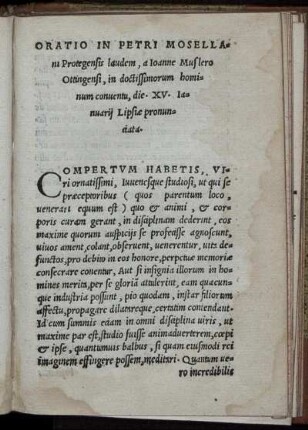 ORATIO IN PETRI MOSELLA-
ni Protegensis laudem, a Ioanne Muslero
Ottingensi, in doctissimorum homi
num conuentu, die ·XV· Ia-
nuarij Lipsiæ pronun-
ciata·
COMPERTVM HABETIS, VI-
ri ornatissimi, Iuuenesque studiosi, ut qui se
præceptoribus ( quos parentum loco ,
uenerari equum est ) quo & animi , & cor
poris curam gerant , in disciplinam dederint, eos
maxime quorum auspicijs se profecisse agnoscunt,
uiuos ament, colant, obseruent, uenerentur, uita de-
functos, pro debito in eos honore, perpetuæ memoriæ
consecrare conentur, Aut si insignia illorum in ho-
mines merita, per se gloriā attulerint, eam quacun-
que industria possunt, pio quodam, instar filiorum
affectu, propagare dilatareque, certatim contendant·
Id cum summis etiam in omni disciplina uiris, ut
maxime par est, studio fuisse animaduerterem, cœpi
& ipse, quantumuis balbus, si quam eiusmodi rei
imaginem effingere possem, meditari· Quantum ue-
ro incredibile